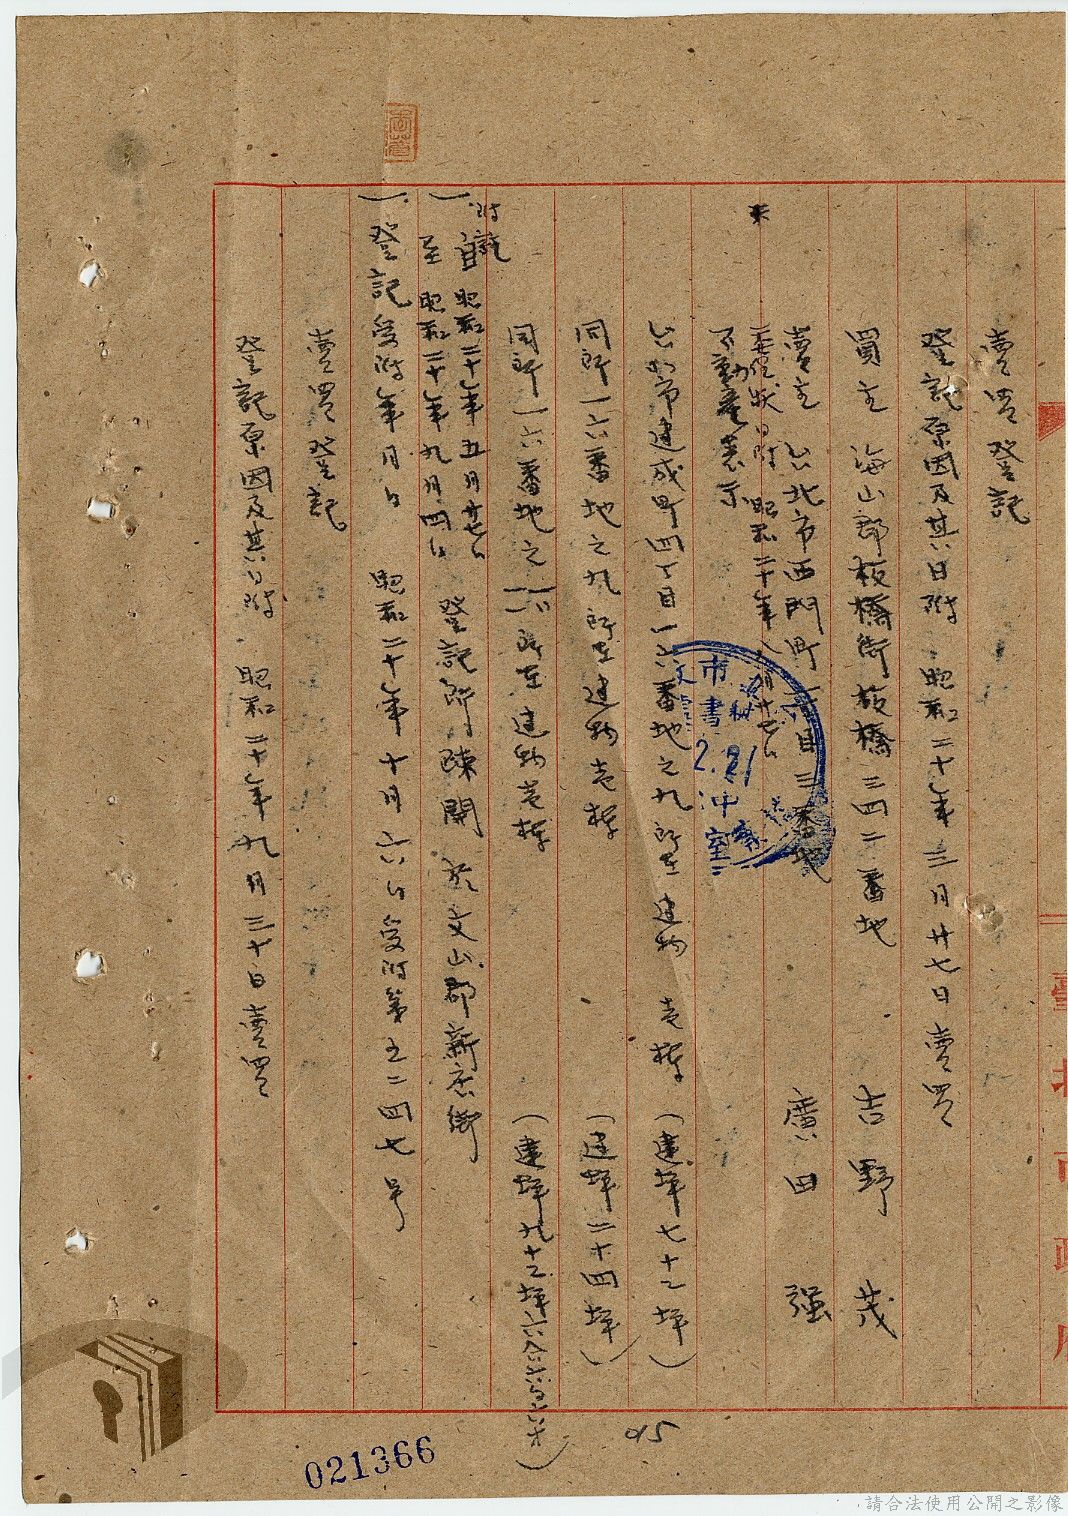 賣買登記
登記原因及其日附 昭和二十年三月廿七日賣買
買主 海山郡板橋街板橋三四二番地 吉野 茂
賣主 台北市西門町一丁目三番地 廣田 强
委任狀日附 昭和二十年八月廿七日
不動產表示
台北市建成町四丁目一六番地之九所在建物 壱棟 (建坪七十二坪)
同所一六番地之九所在建物壱棟 (建坪二十四坪)
同所一六番地之一一所在建物壱棟 (建坪九十二坪六合六勺六才)
附記
一、自昭和二十年五月廿七日
至昭和二十年九月四日 登記所疎開 於文山郡新店街
一、登記受附年月日 昭和二十年十月六日受附第五二四七号
賣買登記
登記原因及其日附 昭和二十年九月三十日賣買
市
文書
2.21
室
95
021366
請合法使用公開之影像